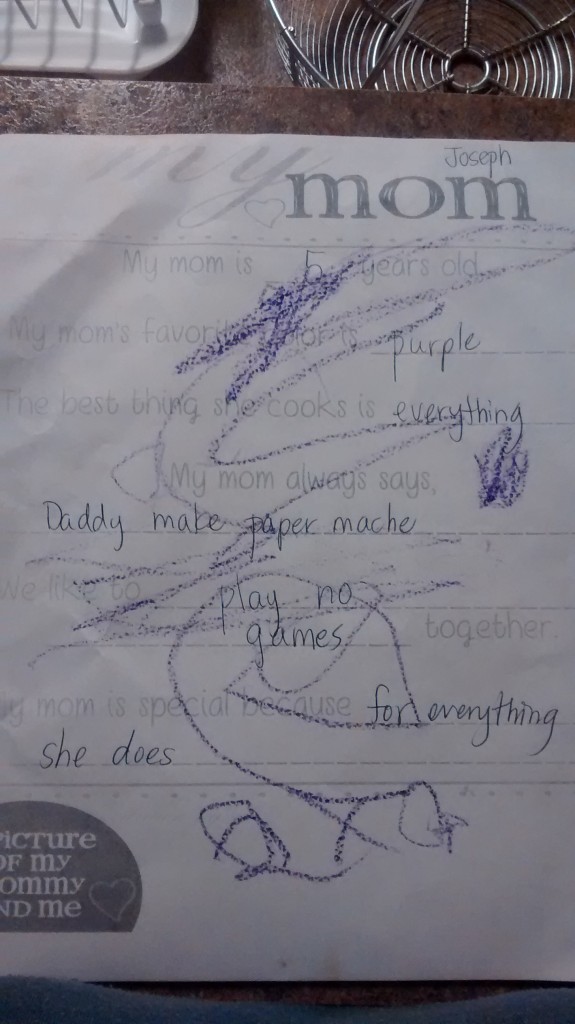 Joseph
my mom
My mom is 5 years old.
My mom's favorite color is purple
The best thing she cooks is everything
My mom always says,
Daddy make paper mache
We like to play no
games together.
my mom is special because for everything
she does
Picture
OF my
mommy
AND me